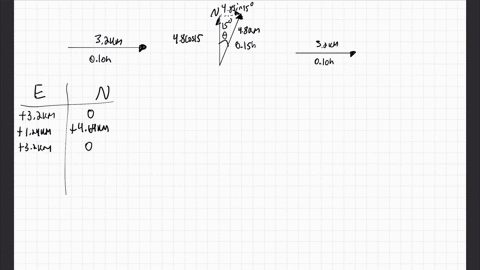 3.2km
0.10h
N
4.8sin15°
15°
θ
4.8cos15
4.8km
0.15h
0.10h
E N
+3.2km 0
+1.24km +4.64km
+3.2km 0